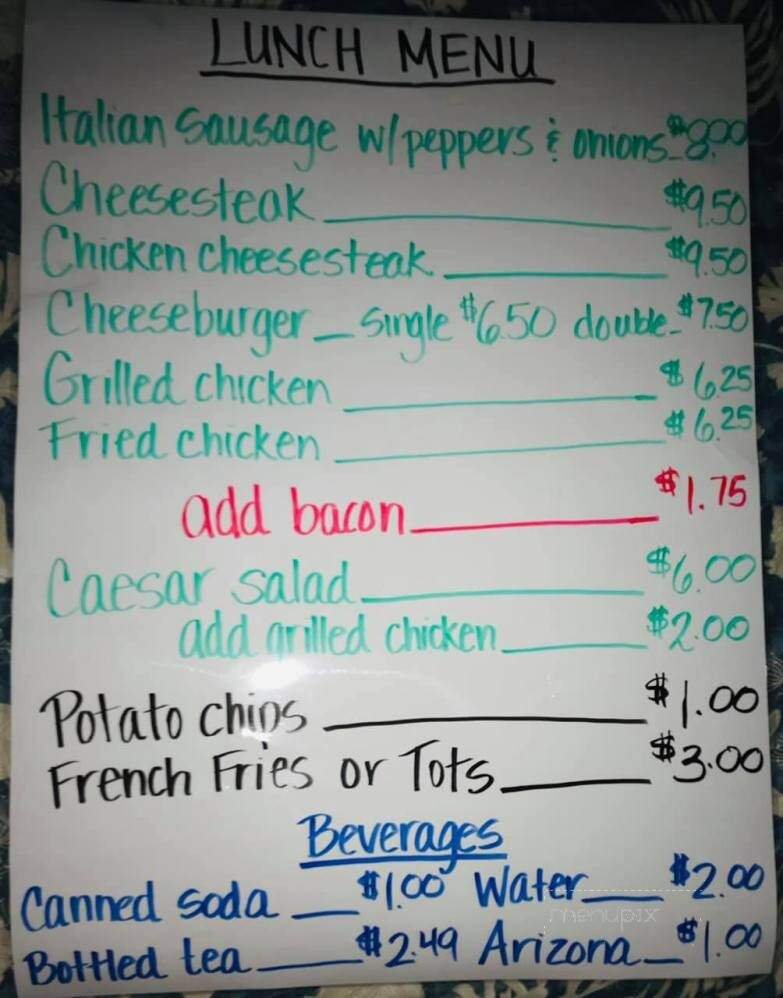 LUNCH MENU
Italian Sausage w/peppers & onions $8.00
Cheesesteak $9.50
Chicken cheesesteak $9.50
Cheeseburger single $6.50 double $7.50
Grilled chicken $6.25
Fried chicken $6.25
add bacon $1.75
Caesar salad $6.00
add grilled chicken $2.00
Potato chips $1.00
French Fries or Tots $3.00
Beverages
Canned soda $1.00 Water $2.00
menupix
Bottled tea $2.49 Arizona $1.00